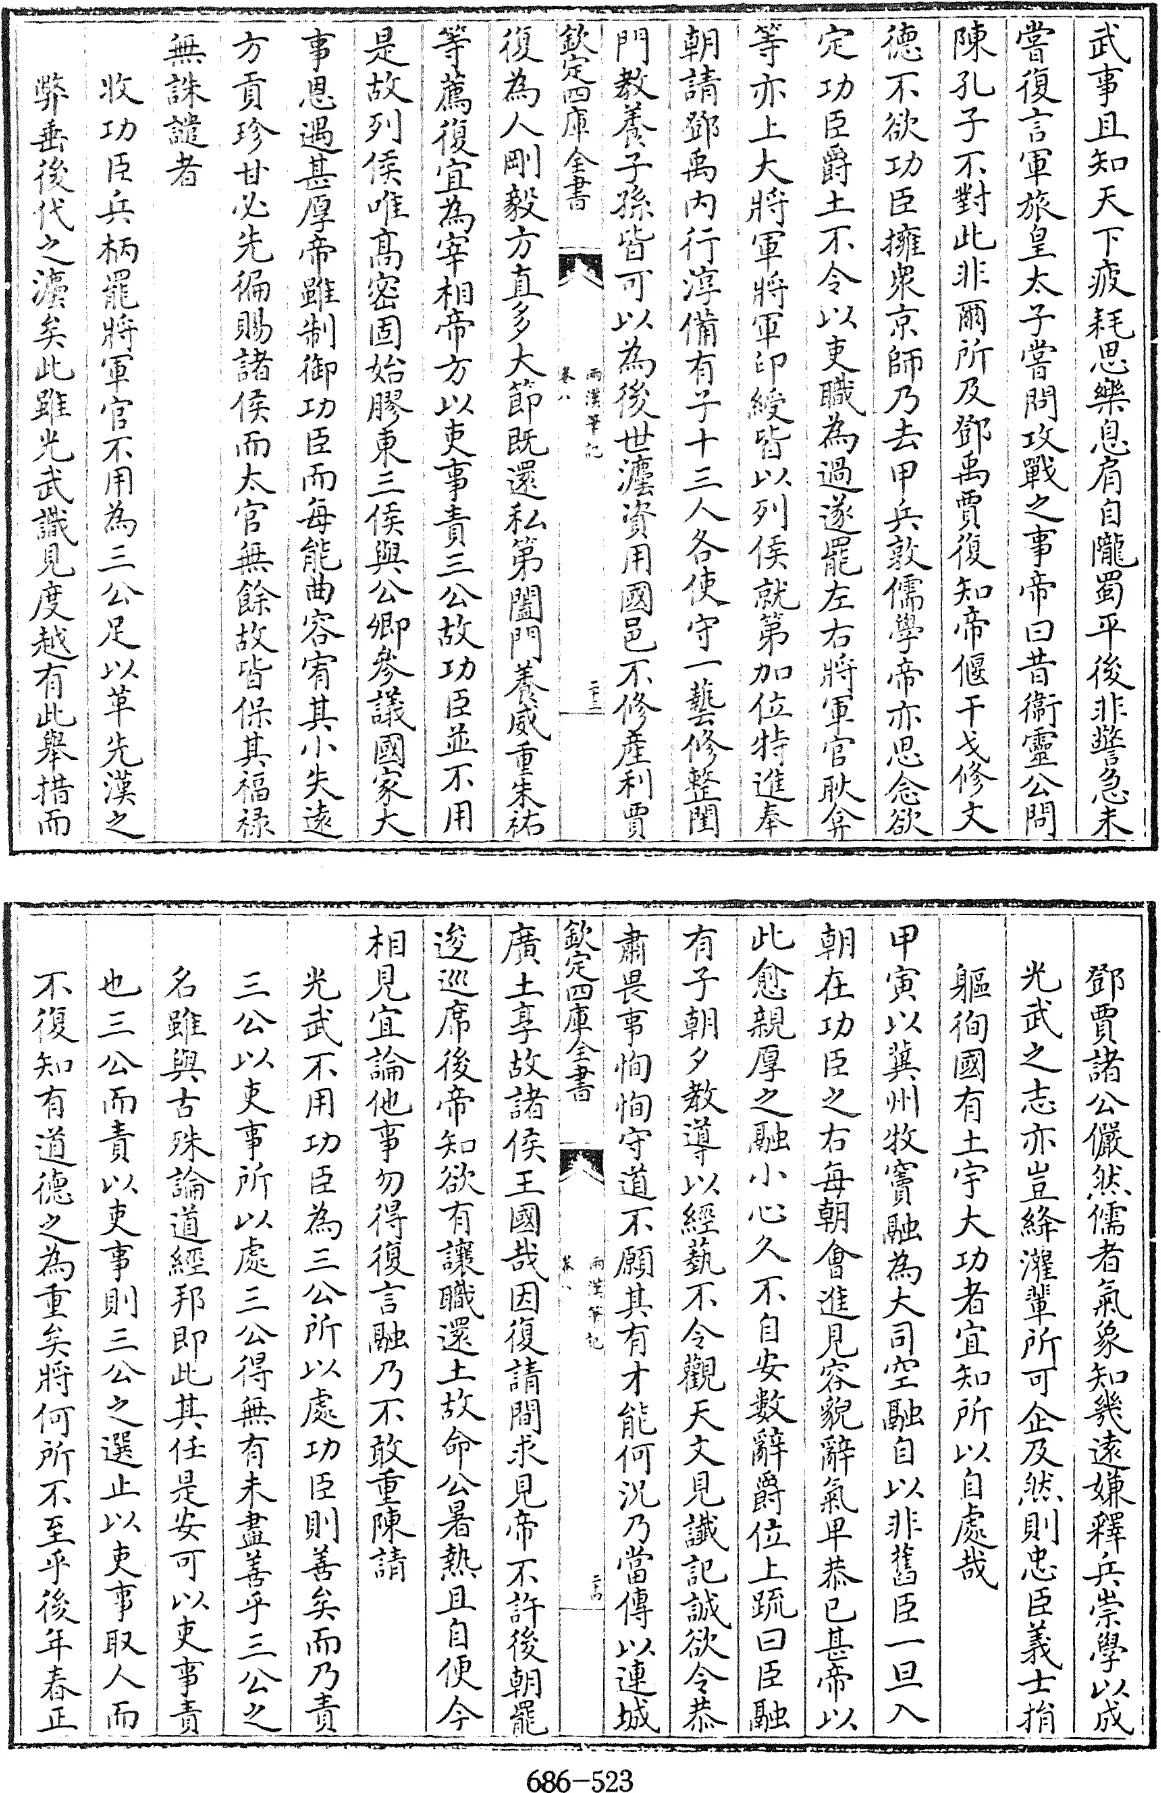 武事且知天下疲耗思樂息肩自隴蜀平後非警急未
嘗復言軍旅皇太子嘗問攻戰之事帝曰昔衛靈公問
陳孔子不對此非爾所及鄧禹賈復知帝偃干戈修文
德不欲功臣擁衆京師乃去甲兵敦儒學帝亦思念欲
定功臣爵土不令以吏職為過遂罷左右將軍官耿弇
等亦上大將軍將軍印綬皆以列侯就第加位特進奉
朝請鄧禹内行淳備有子十三人各使守一藝修整閨
門教養子孫皆可以為後世灋資用國邑不修產利賈
欽定四庫全書
兩漢筆記
卷八
二十三
復為人剛毅方直多大節既還私第闔門養威重朱祐
等薦復宜為宰相帝方以吏事責三公故功臣並不用
是故列侯唯高密固始膠東三侯與公卿參議國家大
事恩遇甚厚帝雖制御功臣而每能曲容宥其小失遠
方貢珍甘必先徧賜諸侯而太官無餘故皆保其福祿
無誅譴者
收功臣兵柄罷將軍官不用為三公足以革先漢之
弊垂後代之灋矣此雖光武識見度越有此舉措而
鄧賈諸公儼然儒者氣象知幾遠嫌釋兵崇學以成
光武之志亦豈絳灌輩所可企及然則忠臣義士捐
軀徇國有土宇大功者宜知所以自處哉
甲寅以冀州牧竇融為大司空融自以非舊臣一旦入
朝在功臣之右每朝會進見容貌辭氣卑恭已甚帝以
此愈親厚之融小心久不自安數辭爵位上疏曰臣融
有子朝夕教導以經藝不令觀天文見讖記誠欲令恭
肅畏事恂恂守道不願其有才能何況乃當傳以連城
欽定四庫全書
兩漢筆記
卷八
二十四
廣土享故諸侯王國哉因復請間求見帝不許後朝罷
逡巡席後帝知欲有讓職還土故命公暑熱且自便今
相見宜論他事勿得復言融乃不敢重陳請
光武不用功臣為三公所以處功臣則善矣而乃責
三公以吏事所以處三公得無有未盡善乎三公之
名雖與古殊論道經邦即此其任是安可以吏事責
也三公而責以吏事則三公之選止以吏事取人而
不復知有道德之為重矣將何所不至乎後年春正
686-523